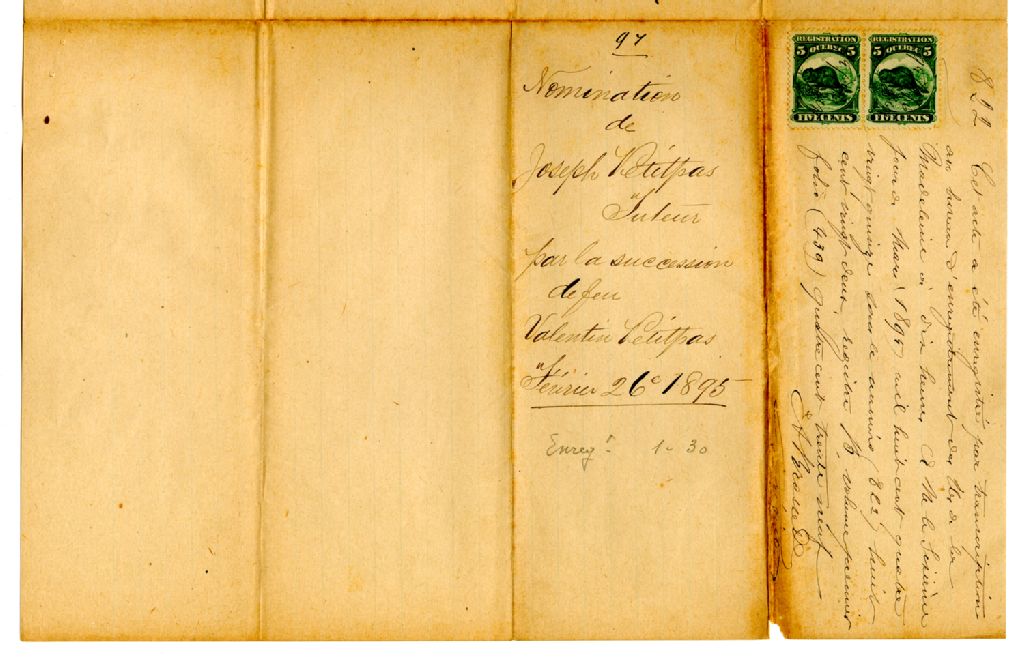 97
Nomination
de
Joseph Petitpas
Tuteur
par la succession
de feu
Valentin Petitpas
Février 26e 1895
Enregt 1-30
REGISTRATION
5 QUEBEC 5
FIVE CENTS
REGISTRATION
5 QUEBEC 5
FIVE CENTS
822
Cet acte a été enregistré par transcription
au bureau d'enregistrement des Iles de la
Madeleine à dix heures A M le sixième
jour de Mars (1895) mil huit cent quatre
vingt quinze sous le numéro (822) huit
cent vingt deux, registre B, volume premier
folio (439) quatre cent trente neuf